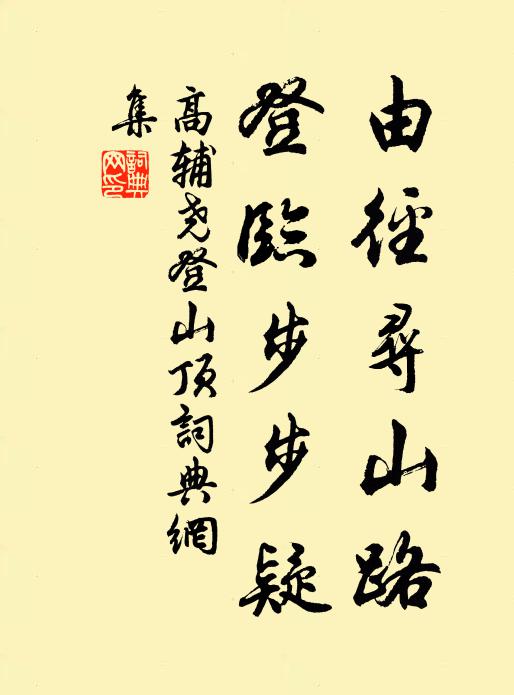 由徑尋山路
登臨步步疑
高輔堯登山頂詞典網
集
詞典
网印